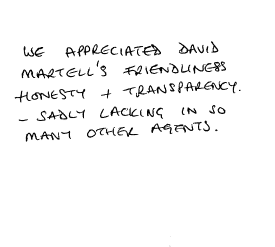 WE APPRECIATED DAVID
MARTELL'S FRIENDLINESS
HONESTY + TRANSPARENCY.
- SADLY LACKING IN SO
MANY OTHER AGENTS.